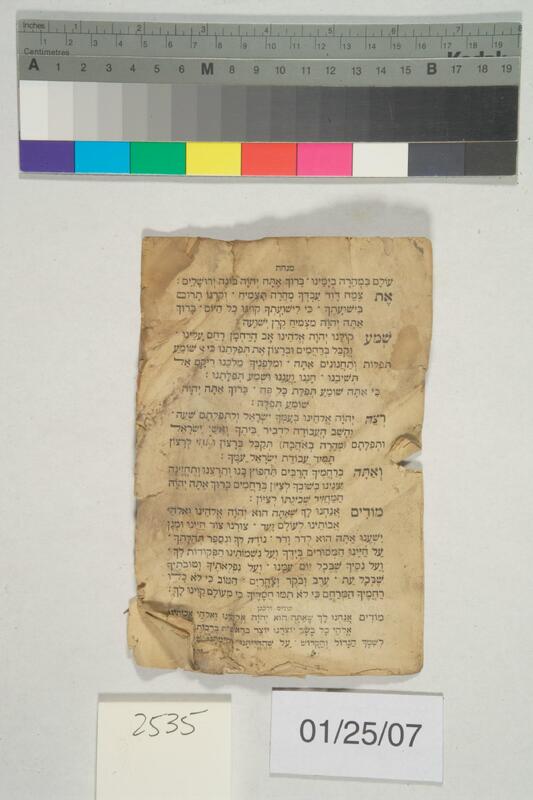 Inches 1 2 3 4 5 6 7 8
Centimetres 1 2 3 4 5 6 7 8 9 10 11 12 13 14 15 16 17 18 19
Kodak
A 1 2 3 4 5 6 M 8 9 10 11 12 13 14 15 B 17 18 19
מנחה
עוֹלָם בִּמְהֵרָה בְיָמֵינוּ · בָּרוּךְ אַתָּה יְהוָֹה בּוֹנֵה יְרוּשָׁלָיִם :
אֶת צֶמַח דָּוִד עַבְדְּךָ מְהֵרָה תַצְמִיחַ · וְקַרְנוֹ תָרוּם
בִּישׁוּעָתֶךָ · כִּי לִישׁוּעָתְךָ קִוִּינוּ כָּל הַיּוֹם · בָּרוּךְ
אַתָּה יְהוָֹה מַצְמִיחַ קֶרֶן יְשׁוּעָה
שְׁמַע קוֹלֵנוּ יְהוָֹה אֱלֹהֵינוּ אָב הָרַחֲמָן רַחֵם עָלֵינוּ ·
וְקַבֵּל בְּרַחֲמִים וּבְרָצוֹן אֶת תְּפִלָּתֵנוּ כִּי שׁוֹמֵעַ
תְּפִלּוֹת וְתַחֲנוּנִים אָתָּה · וּמִלְּפָנֶיךָ מַלְכֵּנוּ רֵיקָם אַל
תְּשִׁיבֵנוּ · חָנֵּנוּ וַעֲנֵנוּ וּשְׁמַע תְּפִלָּתֵנוּ :
כִּי אַתָּה שׁוֹמֵעַ תְּפִלַּת כָּל פֶּה · בָּרוּךְ אַתָּה יְהוָֹה
שׁוֹמֵעַ תְּפִלָּה :
רְצֵה יְהוָֹה אֱלֹהֵינוּ בְּעַמְּךָ יִשְׂרָאֵל וְלִתְפִלָּתָם שְׁעֵה ·
וְהָשֵׁב הָעֲבוֹדָה לִדְבִיר בֵּיתֶךָ וְאִשֵּׁי יִשְׂרָאֵל
וּתְפִלָּתָם (מְהֵרָה בְּאַהֲבָה) תְקַבֵּל בְּרָצוֹן וּתְהִי לְרָצוֹן
תָּמִיד עֲבוֹדַת יִשְׂרָאֵל עַמֶּךָ :
וְאַתָּה בְּרַחֲמֶיךָ הָרַבִּים תַּחְפּוֹץ בָּנוּ וְתִרְצֵנוּ וְתֶחֱזֶינָה
עֵינֵינוּ בְּשׁוּבְךָ לְצִיּוֹן בְּרַחֲמִים בָּרוּךְ אַתָּה יְהוָֹה
הַמַּחֲזִיר שְׁכִינָתוֹ לְצִיּוֹן :
מוֹדִים אֲנַחְנוּ לָךְ שָׁאַתָּה הוּא יְהוָֹה אֱלֹהֵינוּ וֵאלֹהֵי
אֲבוֹתֵינוּ לְעוֹלָם וָעֶד · צוּרֵנוּ צוּר חַיֵּינוּ וּמָגֵן
יִשְׁעֵנוּ אַתָּה הוּא לְדֹר וָדֹר · נוֹדֶה לְּךָ וּנְסַפֵּר תְּהִלָּתֶךָ
עַל חַיֵּינוּ הַמְּסוּרִים בְּיָדֶךָ וְעַל נִשְׁמוֹתֵינוּ הַפְּקוּדוֹת לָךְ ·
וְעַל נִסֶּיךָ שֶׁבְּכָל יוֹם עִמָּנוּ · וְעַל נִפְלְאוֹתֶיךָ וְטוֹבוֹתֶיךָ
שֶׁבְּכָל עֵת · עֶרֶב וָבֹקֶר וְצָהֳרָיִם · הַטּוֹב כִּי לֹא כָלוּ
רַחֲמֶיךָ הַמְרַחֵם כִּי לֹא תַמּוּ חֲסָדֶיךָ כִּי מֵעוֹלָם קִוִּינוּ לָךְ :
מודים דרבנן
מוֹדִים אֲנַחְנוּ לָךְ שָׁאַתָּה הוּא יְהוָֹה אֱלֹהֵינוּ וֵאלֹהֵי אֲבוֹתֵינוּ
אֱלֹהֵי כָל בָּשָׂר יוֹצְרֵנוּ יוֹצֵר בְּרֵאשִׁית בְּרָכוֹת
לְשִׁמְךָ הַגָּדוֹל וְהַקָּדוֹשׁ · עַל שֶׁהֶחֱיִיתָנוּ
2535
01/25/07